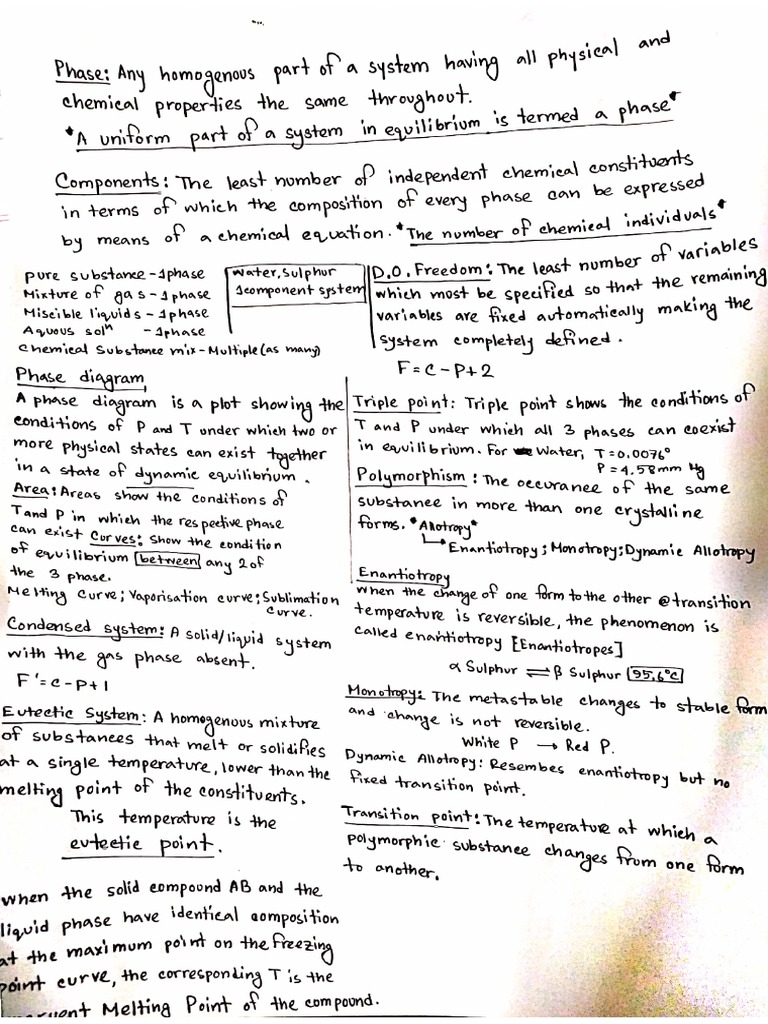 Phase: Any homogenous part of a system having all physical and
chemical properties the same throughout.
*A uniform part of a system in equilibrium is termed a phase*
Components: The least number of independent chemical constituents
in terms of which the composition of every phase can be expressed
by means of a chemical equation. *The number of chemical individuals*
pure substance - 1phase
Mixture of gas - 1phase
Miscible liquids - 1phase
Aquous solⁿ - 1phase
Chemical Substance mix - Multiple (as many)
Water, Sulphur
1component system
D.O. Freedom: The least number of variables
which most be specified so that the remaining
variables are fixed automatically making the
system completely defined.
F = C - P + 2
Phase diagram
A phase diagram is a plot showing the
conditions of P and T under which two or
more physical states can exist together
in a state of dynamic equilibrium.
Area: Areas show the conditions of
T and P in which the respective phase
can exist Curves: Show the condition
of equilibrium between any 2 of
the 3 phase.
Melting Curve; Vaporisation curve; Sublimation
curve.
Condensed system: A solid/liquid system
with the gas phase absent.
F' = C - P + 1
Eutectic System: A homogenous mixture
of substances that melt or solidifies
at a single temperature, lower than the
melting point of the constituents.
This temperature is the
eutectic point.
When the solid compound AB and the
liquid phase have identical composition
at the maximum point on the freezing
point curve, the corresponding T is the
Melting Point of the compound.
Triple point: Triple point shows the conditions of
T and P under which all 3 phases can coexist
in equilibrium. For Water, T = 0.0076°
P = 4.58mm Hg
Polymorphism: The occurance of the same
substance in more than one crystalline
forms. *Allotropy*
Enantiotropy; Monotropy; Dynamic Allotropy
Enantiotropy
When the change of one form to the other @ transition
temperature is reversible, the phenomenon is
called enantiotropy [Enantiotropes]
α Sulphur ⇌ β Sulphur 95.6°C
Monotropy: The metastable changes to stable form
and change is not reversible.
White P → Red P.
Dynamic Allotropy: Resembes enantiotropy but no
fixed transition point.
Transition point: The temperature at which a
polymorphic substance changes from one form
to another.